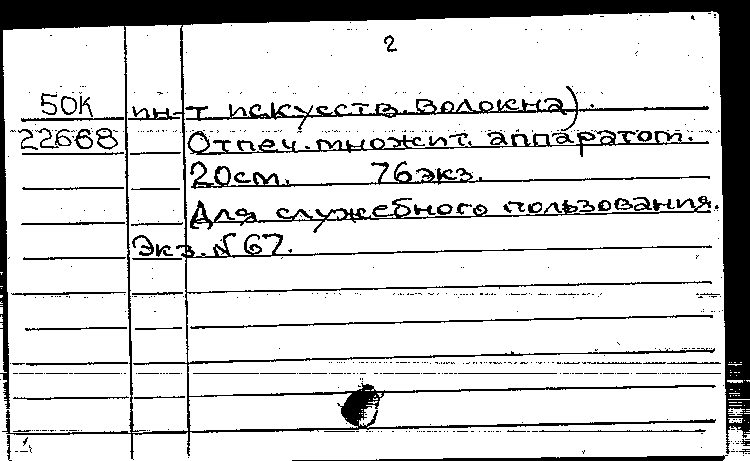 2
50К ин-т искусств. Волокна).
22668 Отпеч. множит. аппаратом.
20см. 76экз.
Для служебного пользования.
Экз. N 67.